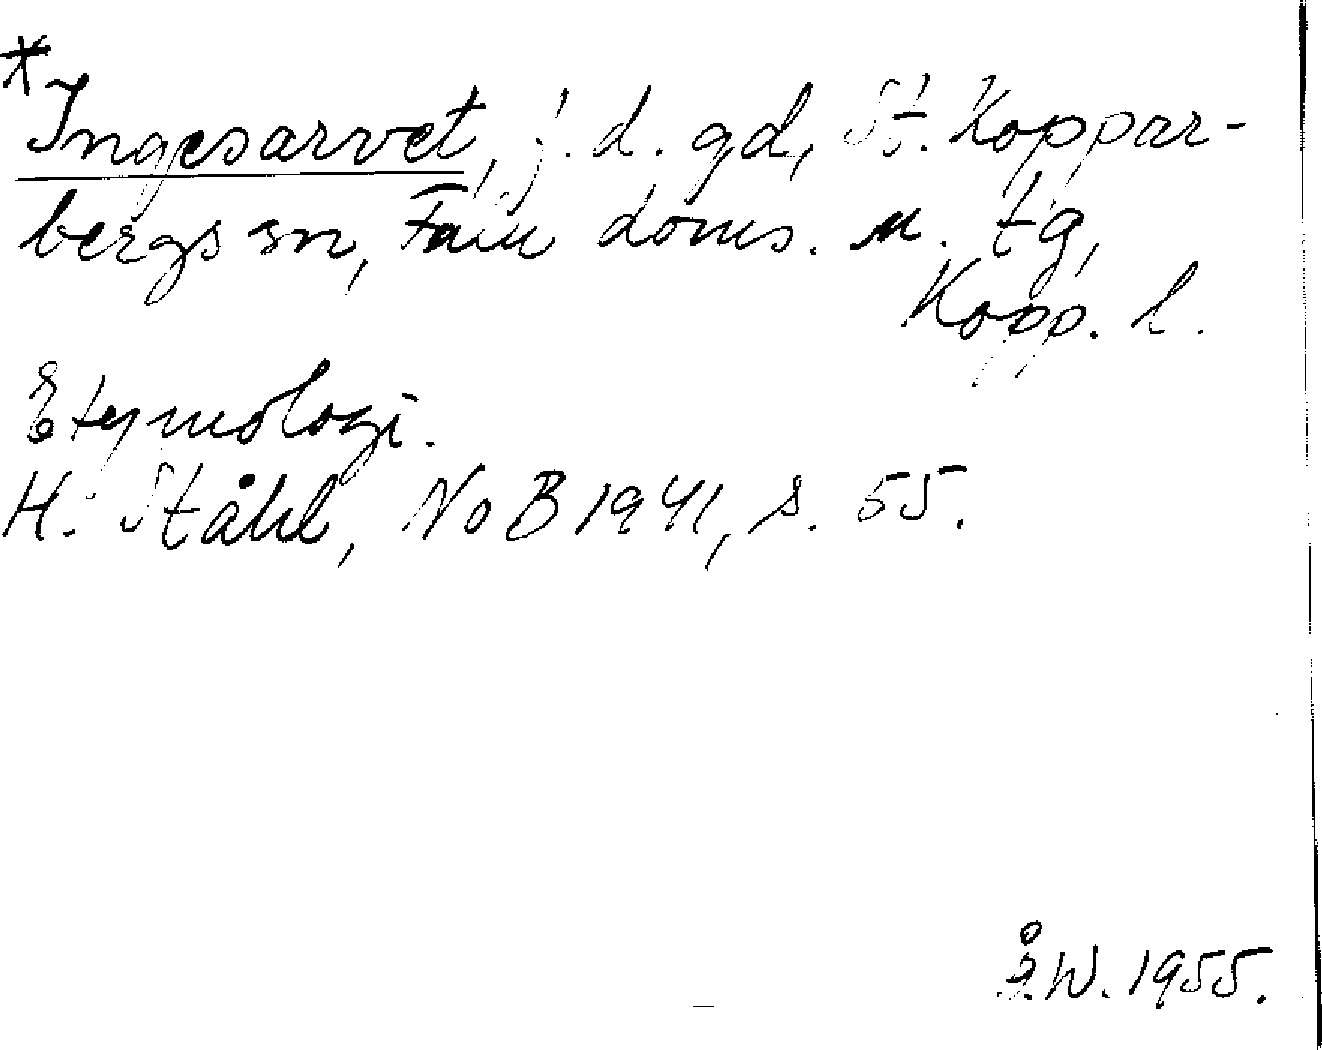 *Ingesarvet, j. d. gd, St. Koppar-
bergs sn, Falu doms. n. tg,
Kopp. l.
Etymologi.
H. Ståhl, NoB 1941, s. 55.
Å.W. 1955.